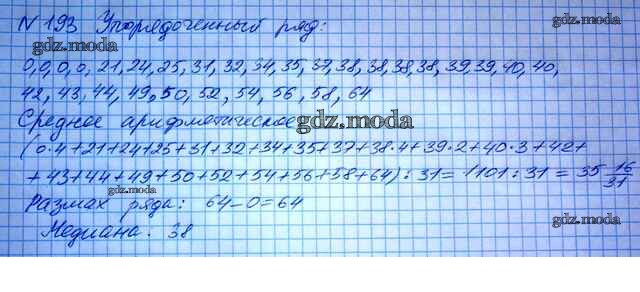 №193 Упорядоченный ряд:
gdz.moda gdz.moda
0,0,0,0,21,24,25,31,32,34,35,37,38,38,38,38,39,39,40,40,
42,43,44,49,50,52,54,56,58,64
Среднее арифметическое gdz.moda
(0·4+21+24+25+31+32+34+35+37+38·4+39·2+40·3+42+
+43+44+49+50+52+54+56+58+64):31=1101:31=35 16/31
Размах ряда: 64-0=64
gdz.moda gdz.moda
Медиана: 38